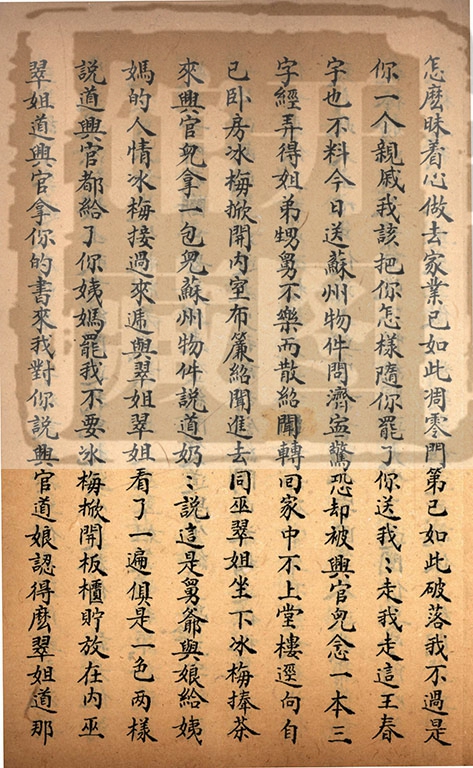 怎麽昧着心做去家業已如此凋零門第已如此破落我不過是
你一个親戚我該把你怎樣隨你罷了你送我〻走我走這王春
宇也不料今日送蘇州物件問濟盗驚恐却被興官兒念一本三
字經弄得姐弟甥舅不樂而散紹聞轉回家中不上堂樓逕向自
已卧房冰梅掀開内室布簾紹聞進去同巫翠姐坐下冰梅捧茶
來興官兒拿一包兒蘇州物件說道奶〻說這是舅爺與娘給姨
媽的人情冰梅接過來逓與翠姐翠姐看了一遍俱是一色两樣
說道興官都給了你姨媽罷我不要冰梅掀開板櫃貯放在内巫
翠姐道興官拿你的書來我對你說興官道娘認得麽翠姐道那